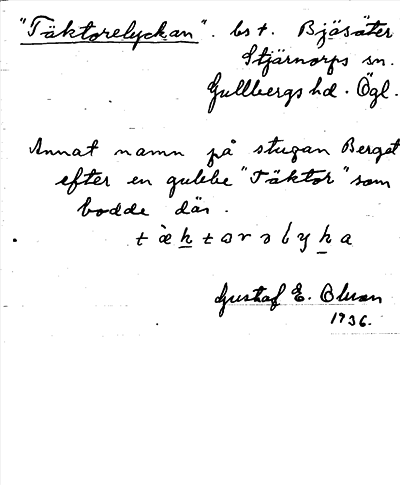 "Täktorelyckan". bst. Bjäsäter
Stjärnorps sn.
Gullbergs hd. Ögl.
Annat namn på stugan Berget
efter en gubbe "Täktor" som
bodde där.
Gustaf E.
1936.